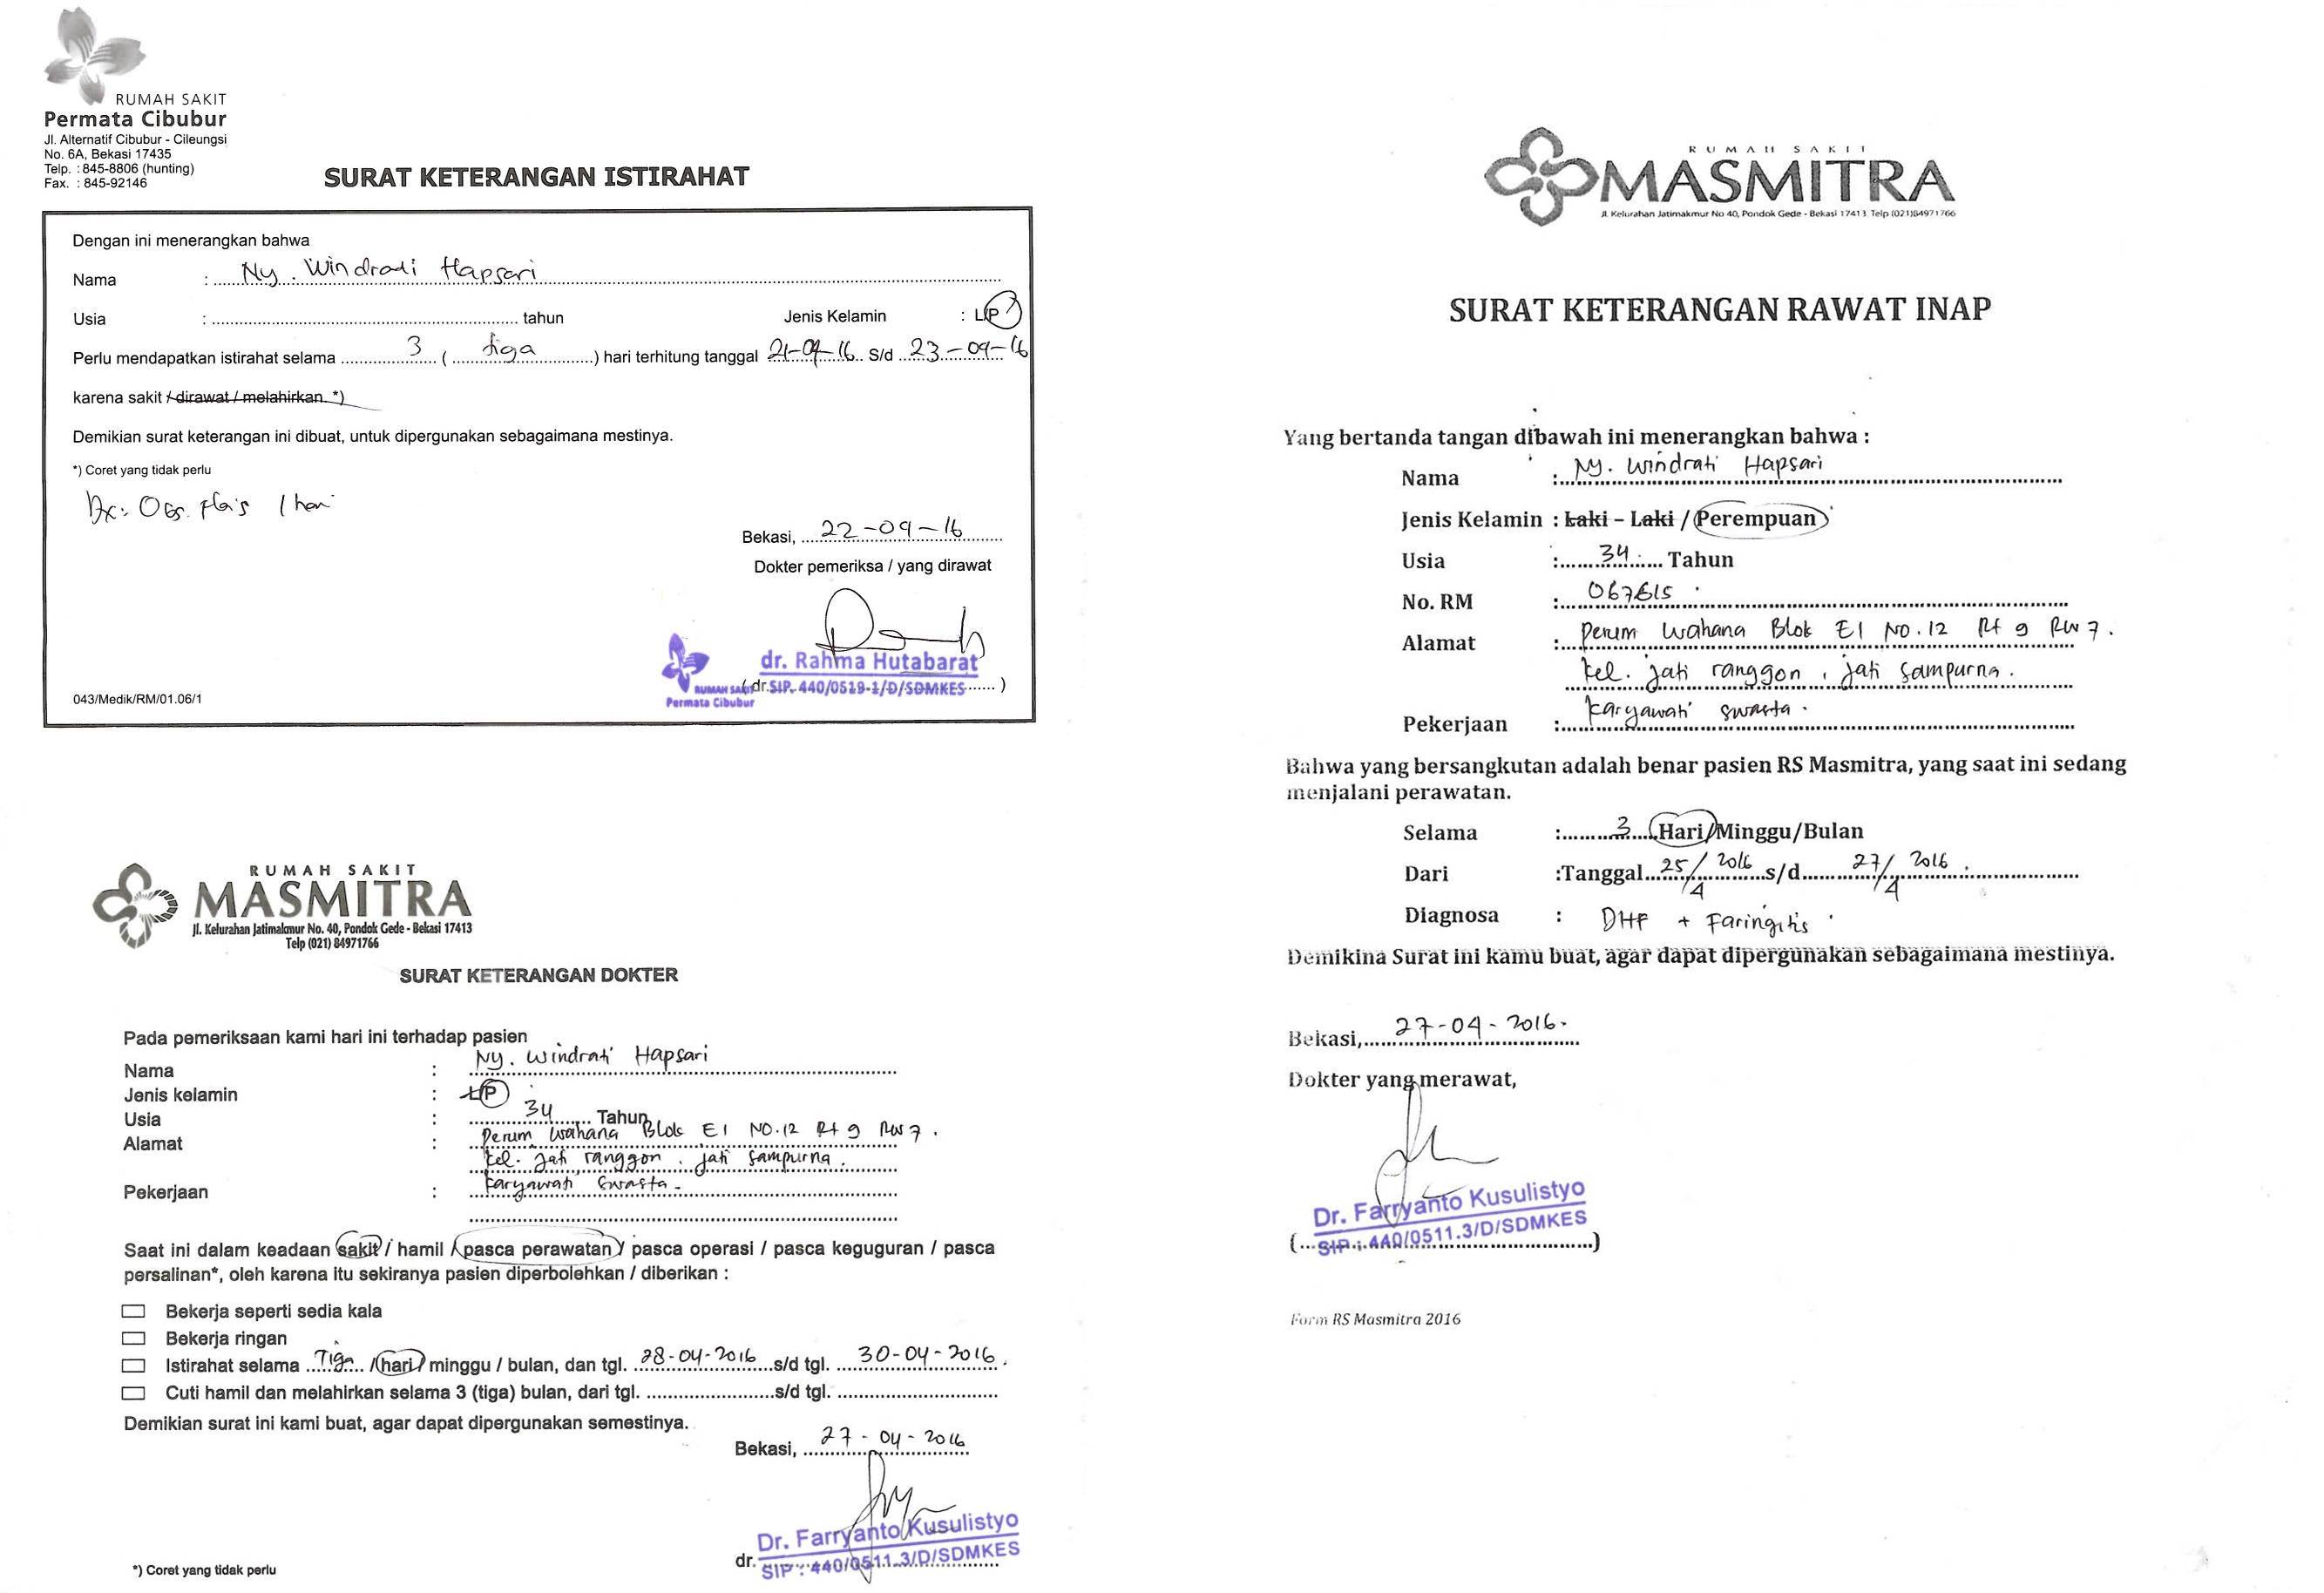 RUMAH SAKIT
Permata Cibubur
Jl. Alternatif Cibubur - Cileungsi
No. 6A, Bekasi 17435
Telp. : 845-8806 (hunting)
Fax. : 845-92146
SURAT KETERANGAN ISTIRAHAT
Dengan ini menerangkan bahwa
Nama : Ny. Windrati Hapsari
Usia : tahun Jenis Kelamin : L/P
Perlu mendapatkan istirahat selama 3 ( tiga ) hari terhitung tanggal 21-09-16 S/d 23-09-16
karena sakit / dirawat / melahirkan. *)
Demikian surat keterangan ini dibuat, untuk dipergunakan sebagaimana mestinya.
*) Coret yang tidak perlu
Dx: Obs. 1 hari
Bekasi, 22-09-16
Dokter pemeriksa / yang dirawat
dr. Rahma Hutabarat
(dr. SIP. 440/0519-1/D/SDMKES )
RUMAH SAKIT
Permata Cibubur
043/Medik/RM/01.06/1
RUMAH SAKIT
MASMITRA
Jl. Kelurahan Jatimakmur No. 40, Pondok Gede - Bekasi 17413
Telp (021) 84971766
SURAT KETERANGAN DOKTER
Pada pemeriksaan kami hari ini terhadap pasien
Nama : Ny. Windrati Hapsari
Jenis kelamin : L/P
Usia : 34 Tahun
Alamat : Perum Wahana Blok E1 NO.12 Rt 9 RW 7.
kel. jati ranggon, jati sampurna.
Pekerjaan : karyawati swasta.
Saat ini dalam keadaan sakit / hamil / pasca perawatan / pasca operasi / pasca keguguran / pasca
persalinan*, oleh karena itu sekiranya pasien diperbolehkan / diberikan :
Bekerja seperti sedia kala
Bekerja ringan
Istirahat selama Tiga / hari / minggu / bulan, dan tgl. 28-04-2016 s/d tgl. 30-04-2016.
Cuti hamil dan melahirkan selama 3 (tiga) bulan, dari tgl. s/d tgl.
Demikian surat ini kami buat, agar dapat dipergunakan semestinya.
Bekasi, 27-04-2016
Dr. Farryanto Kusulistyo
dr. SIP : 440/0511.3/D/SDMKES
*) Coret yang tidak perlu
RUMAH SAKIT
MASMITRA
Jl. Kelurahan Jatimakmur No 40, Pondok Gede - Bekasi 17413 Telp (021)84971766
SURAT KETERANGAN RAWAT INAP
Yang bertanda tangan dibawah ini menerangkan bahwa :
Nama : Ny. Windrati Hapsari
Jenis Kelamin : Laki - Laki / Perempuan
Usia : 34 Tahun
No. RM : 067615
Alamat : Perum Wahana Blok E1 NO.12 Rt 9 RW 7.
kel. jati ranggon, jati sampurna.
Pekerjaan : karyawati swasta.
Bahwa yang bersangkutan adalah benar pasien RS Masmitra, yang saat ini sedang
menjalani perawatan.
Selama : 3 Hari/Minggu/Bulan
Dari :Tanggal 25/4 2016 s/d 27/4 2016.
Diagnosa : DHF + Faringitis
Demikina Surat ini kamu buat, agar dapat dipergunakan sebagaimana mestinya.
Bekasi, 27-04-2016.
Dokter yang merawat,
Dr. Farryanto Kusulistyo
( SIP : 440/0511.3/D/SDMKES )
Form RS Masmitra 2016